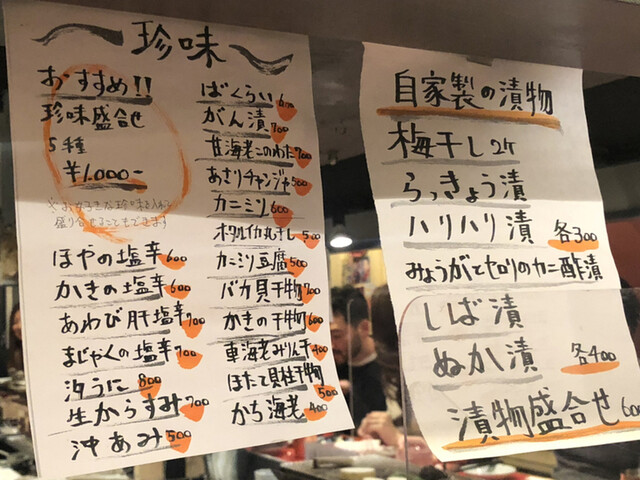 珍味
おすすめ!!
珍味盛合せ
5種
¥1,000-
盛り合せることもできます
ほやの塩辛 600
かきの塩辛 600
あわび肝塩辛 700
まじゃくの塩辛 700
汐うに 800
生からすみ 700
沖あみ 500
ばくらい 600
がん漬 700
甘海老このわた 700
あさりチャンジャ 500
カニミソ 600
ホタルイカ丸干し 500
カニミソ豆腐 500
バカ貝干物 700
かきの干物 600
車海老みりん干 400
ほたて貝柱干物 500
かち海老 400
自家製の漬物
梅干し 2ケ
らっきょう漬
ハリハリ漬 各300
みょうがとセロリのカニ酢漬
しば漬
ぬか漬 各400
漬物盛合せ 600